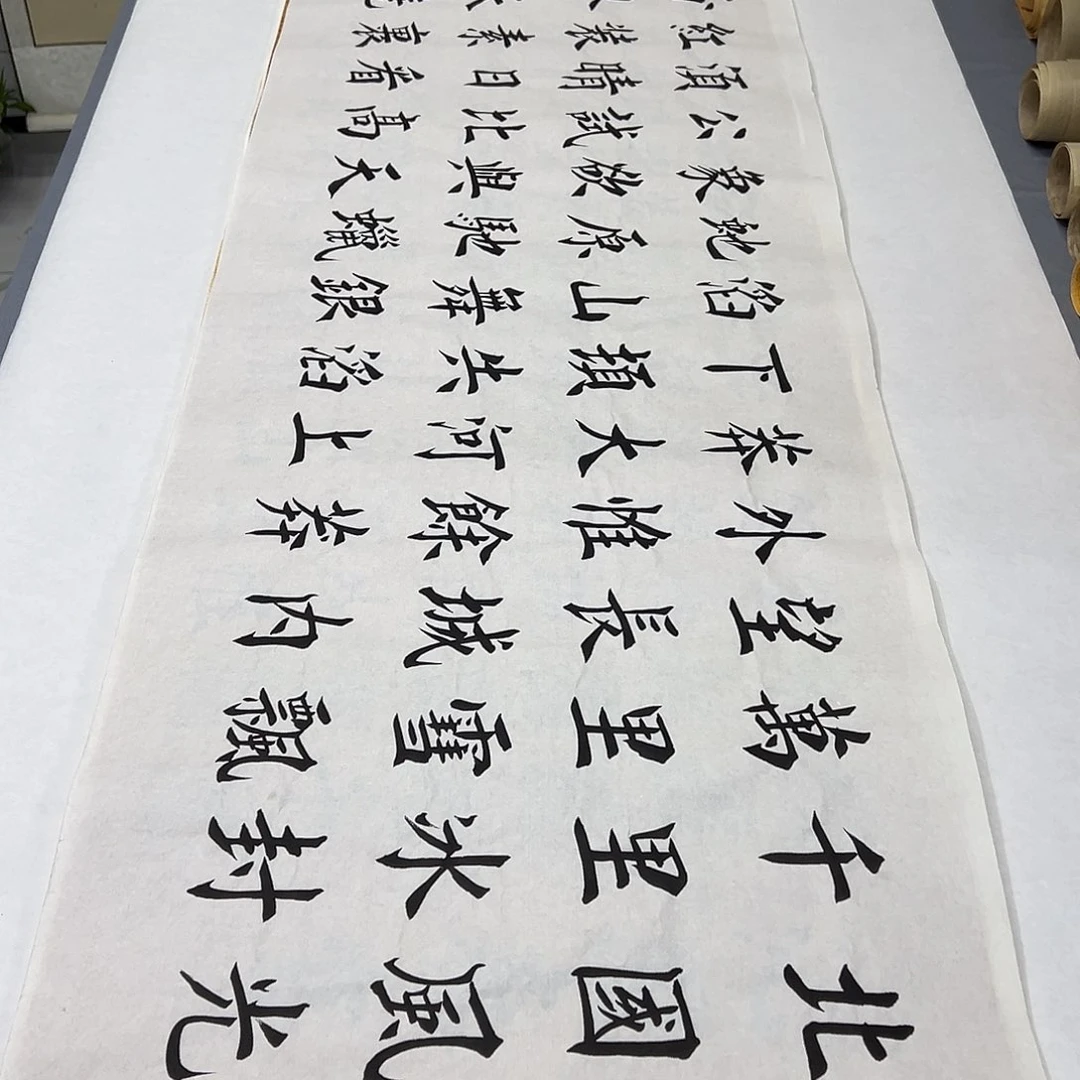 北國風光
千里冰封
萬里雪飄
望長城內
外惟餘莽
莽大河上
下頓失滔
滔山舞銀
蛇原馳蠟
象欲與天
公試比高
須晴日看
紅裝素裹